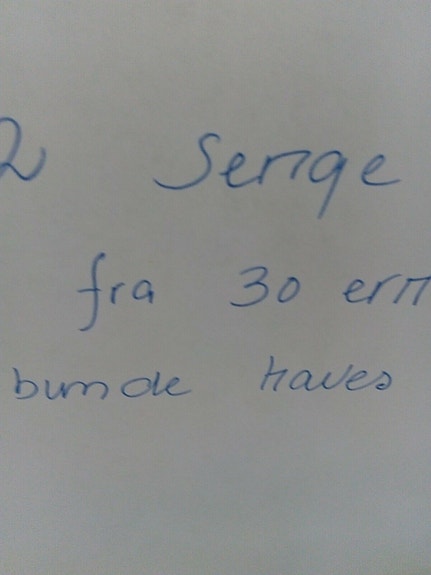 2 Senge
fra 30 ern
bunde haves